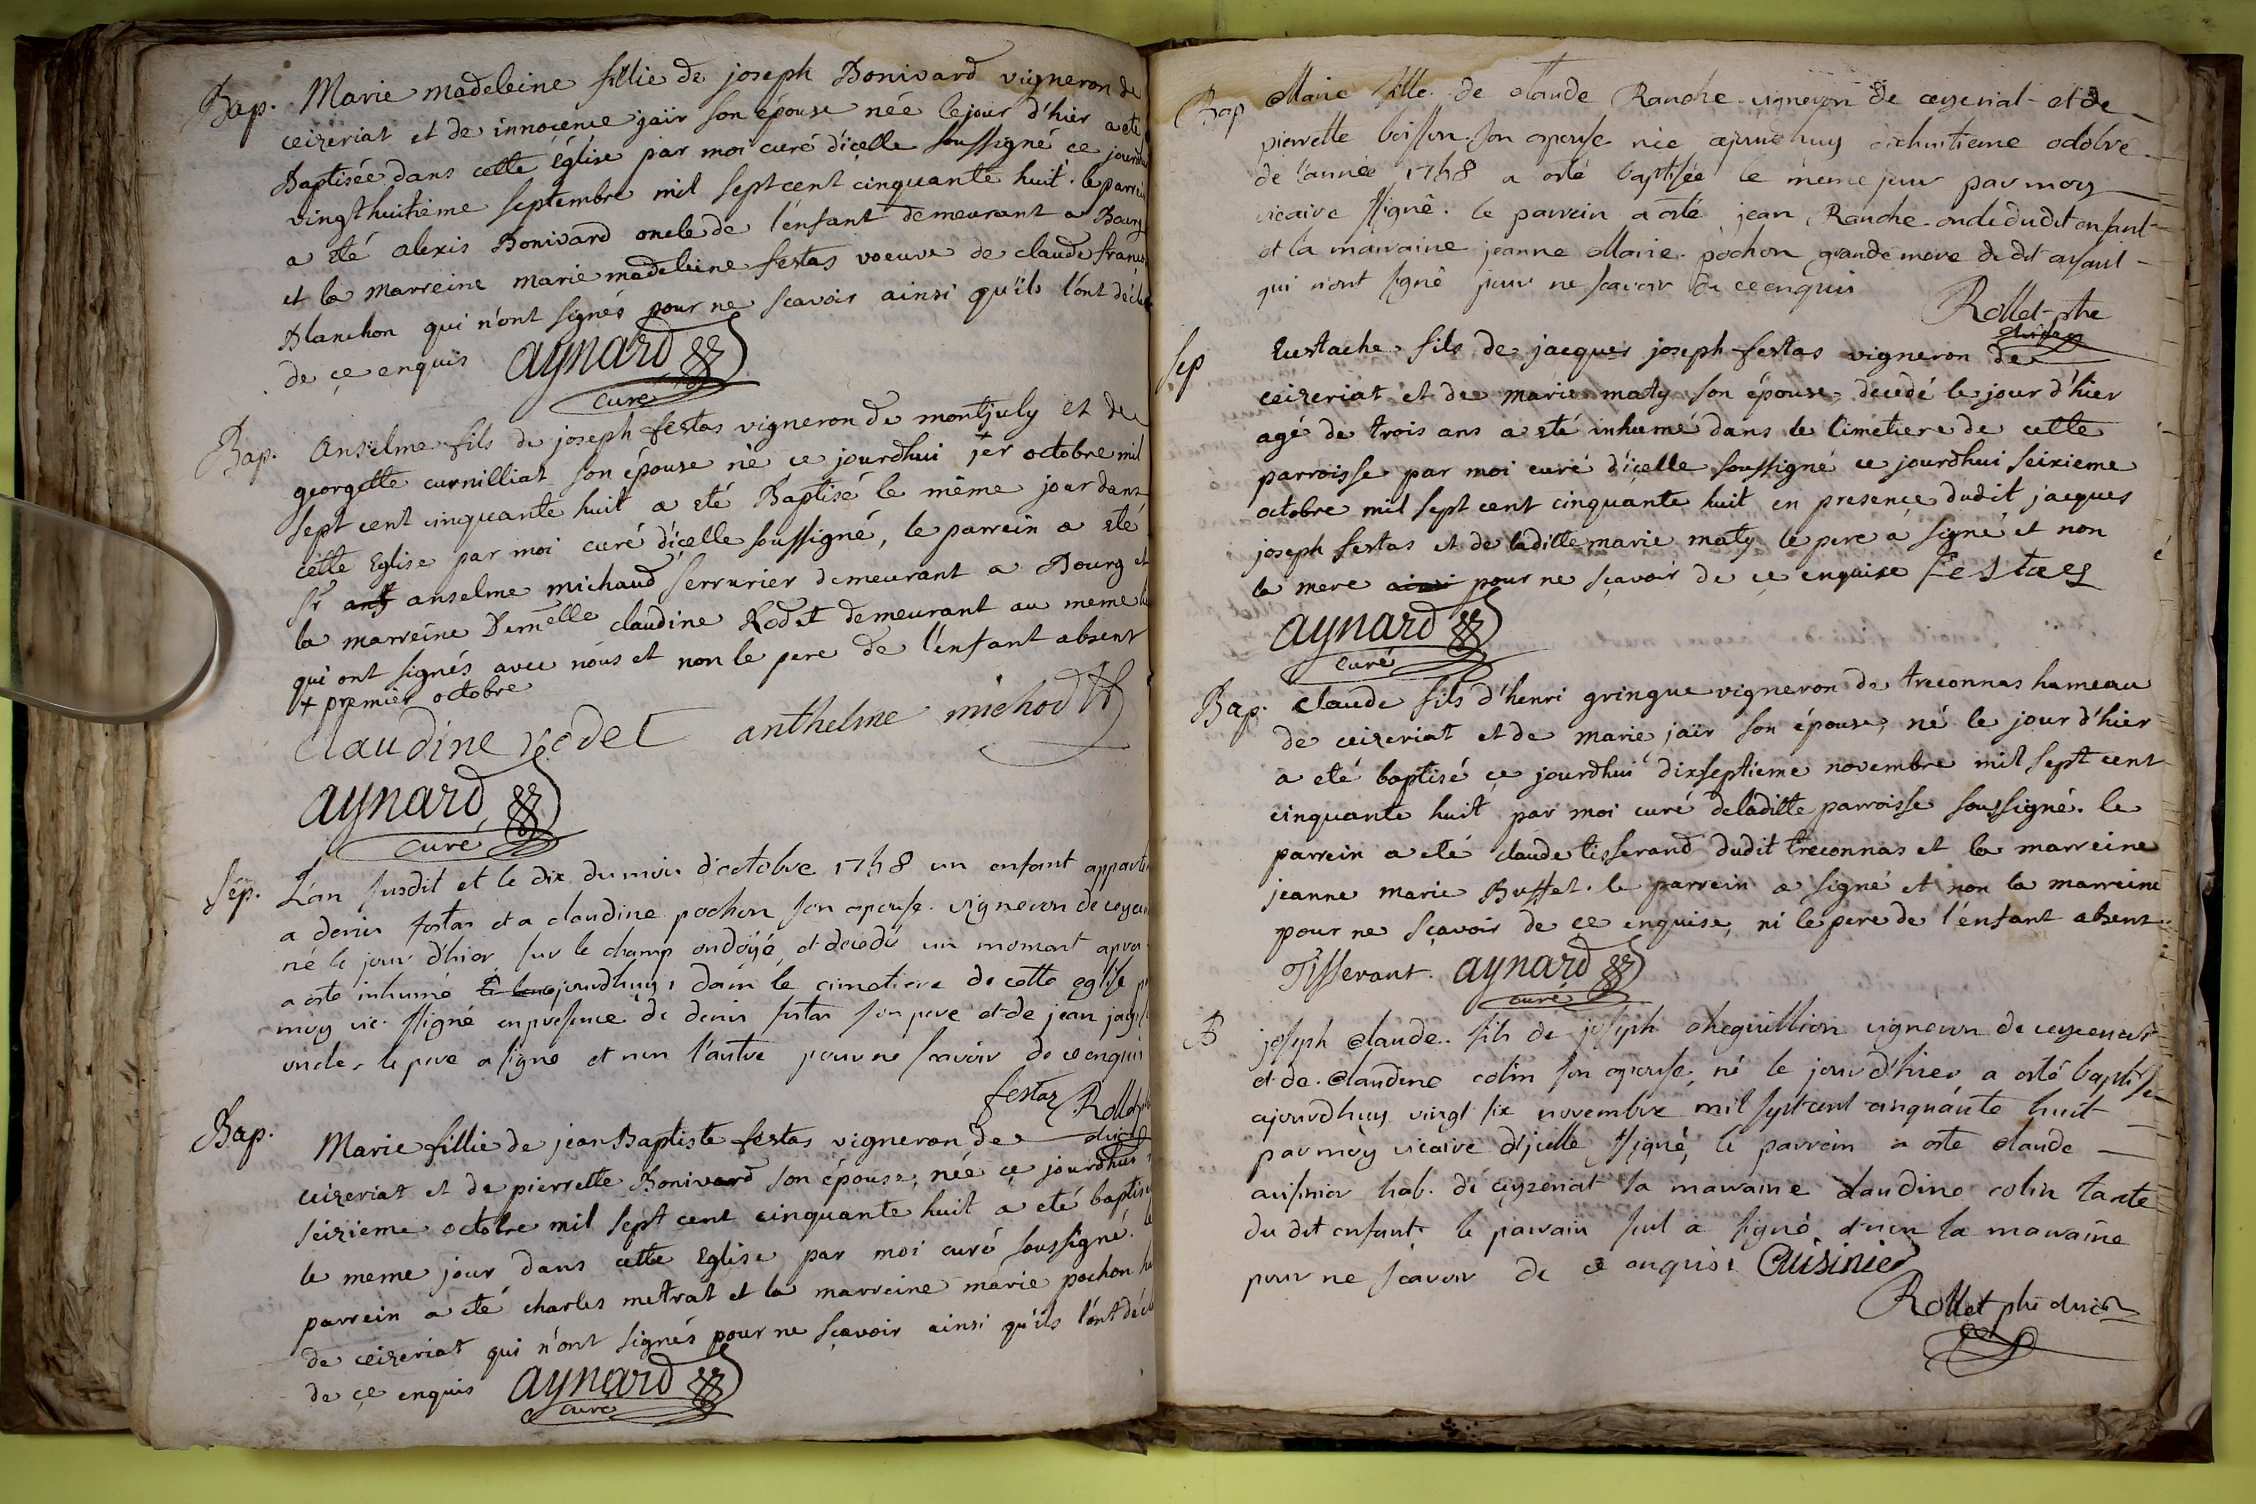 Bap. Marie madeleine fillie de joseph Bonivard vigneron de
ceizeriat et de innocence jaïr son épouse née le jour d'hier a eté
Baptisée dans cette église par moi curé d'içelle soussigné ce jourd
vingt huitième septembre mil sept cent cinquante huit. le parrei
a eté alexis Bonivard oncle de l'enfant demeurant a Bourg
et la marreine marie madeleine festas voeuve de claude franço
Blanchon qui n'ont signés pour ne scavoir ainsi qu'ils l'ont déclar
de çe enquis aynard
curé
Bap. Anselme fils de joseph festas vigneron de montjuly et de
georgette curnilliat son épouse né ce jourdhui + 1er octobre mil
sept cent cinquante huit a eté Baptisé le même jour dans
cette Eglise par moi curé d'içelle soussigné, le parrein a eté
sr anselme michaud serrurier demeurant a Bourg et
la marreine Demelle claudine Rodet demeurant au meme
qui ont signés avec nous et non le pere de l'enfant absent
+ premier octobre
claudine rodet anthelme michod
aynard
curé
Sép. L'an susdit et le dix du mois d'octobre 1758 un enfant apparte
a denis festas et a claudine pochon son epouse vigneron de ceyze
né le jour d'hier sur le champ ondoyé et decedé un moment apres
a esté inhumé ajourdhuy dans le cimetiere de cette eglise p
moy vic. ssigné en presence de denis festas son pere et de jean
oncle, le pere a signé et non l'autre pour ne scavoir de ce enquis
festaz Rollet
Bap. Marie fillie de jean Baptiste festas vigneron de
ceizeriat et de pierrette Bonivard son épouse, née çe jourdhui
seizieme octobre mil sept cent cinquante huit a eté baptisé
le meme jour dans cette Eglise par moi curé soussigné. le
parrein a eté charles metrat et la marreine marie pochon
de ceizeriat qui n'ont signés pour ne sçavoir ainsi qu'ils l'ont décl
de çe enquis aynard
curé
Bap Marie fille de claude Ranche vigneron de ceyzeriat et de
pierrette boisson son epouse née ajourdhuy dixhuitieme octobre
de l'année 1758 a esté baptisée le meme jour par moy
vicaire ssigné. le parrein a esté jean Ranche oncle dudit enfant
et la marraine jeanne Marie pochon grande mere dudit enfant
qui n'ont signé pour ne scavoir de ce enquis
Rollet ptre
Sep Eustache fils de jacques joseph festas vigneron de
ceizeriat et de marie maty son épouse decedé le jour d'hier
agé de trois ans a eté inhumé dans le cimetiere de cette
parroisse par moi curé d'içelle soussigné ce jourdhui seizieme
octobre mil sept cent cinquante huit en presence dudit jacques
joseph festas et de ladille marie maty le pere a signé et non
la mere ainsi pour ne sçavoir de çe enquise Festaes
aynard
curé
Bap. claude fils d'henri gringue vigneron de treconnas hameau
de ceizeriat et de marie jaïr son épouse, né le jour d'hier
a eté baptisé çe jourdhui dixseptieme novembre mil sept cent
cinquante huit par moi curé deladitte parroisse soussigné. le
parrein a eté claude tisserand dudit treconnas et la marreine
jeanne marie Buffet. le parrein a signé et non la marreine
pour ne sçavoir de çe enquise, ni le pere de l'enfant absent
Tisserant. aynard
curé
B joseph claude fils de joseph cheguillion vigneron de ceyzeriat
et de claudine colin son epouse, né le jour d'hier a esté baptisé
ajourdhuy vingt six novembre mil sept cent cinquante huit
par moy vicaire d'icelle ssigné, le parrein a esté claude
cuisinier hab. de ceyzeriat la marraine claudine colin tante
du dit enfant le parrain seul a signé et non la marraine
pour ne scavoir de ce enquise Cuisinier
Rollet ptre et vicr